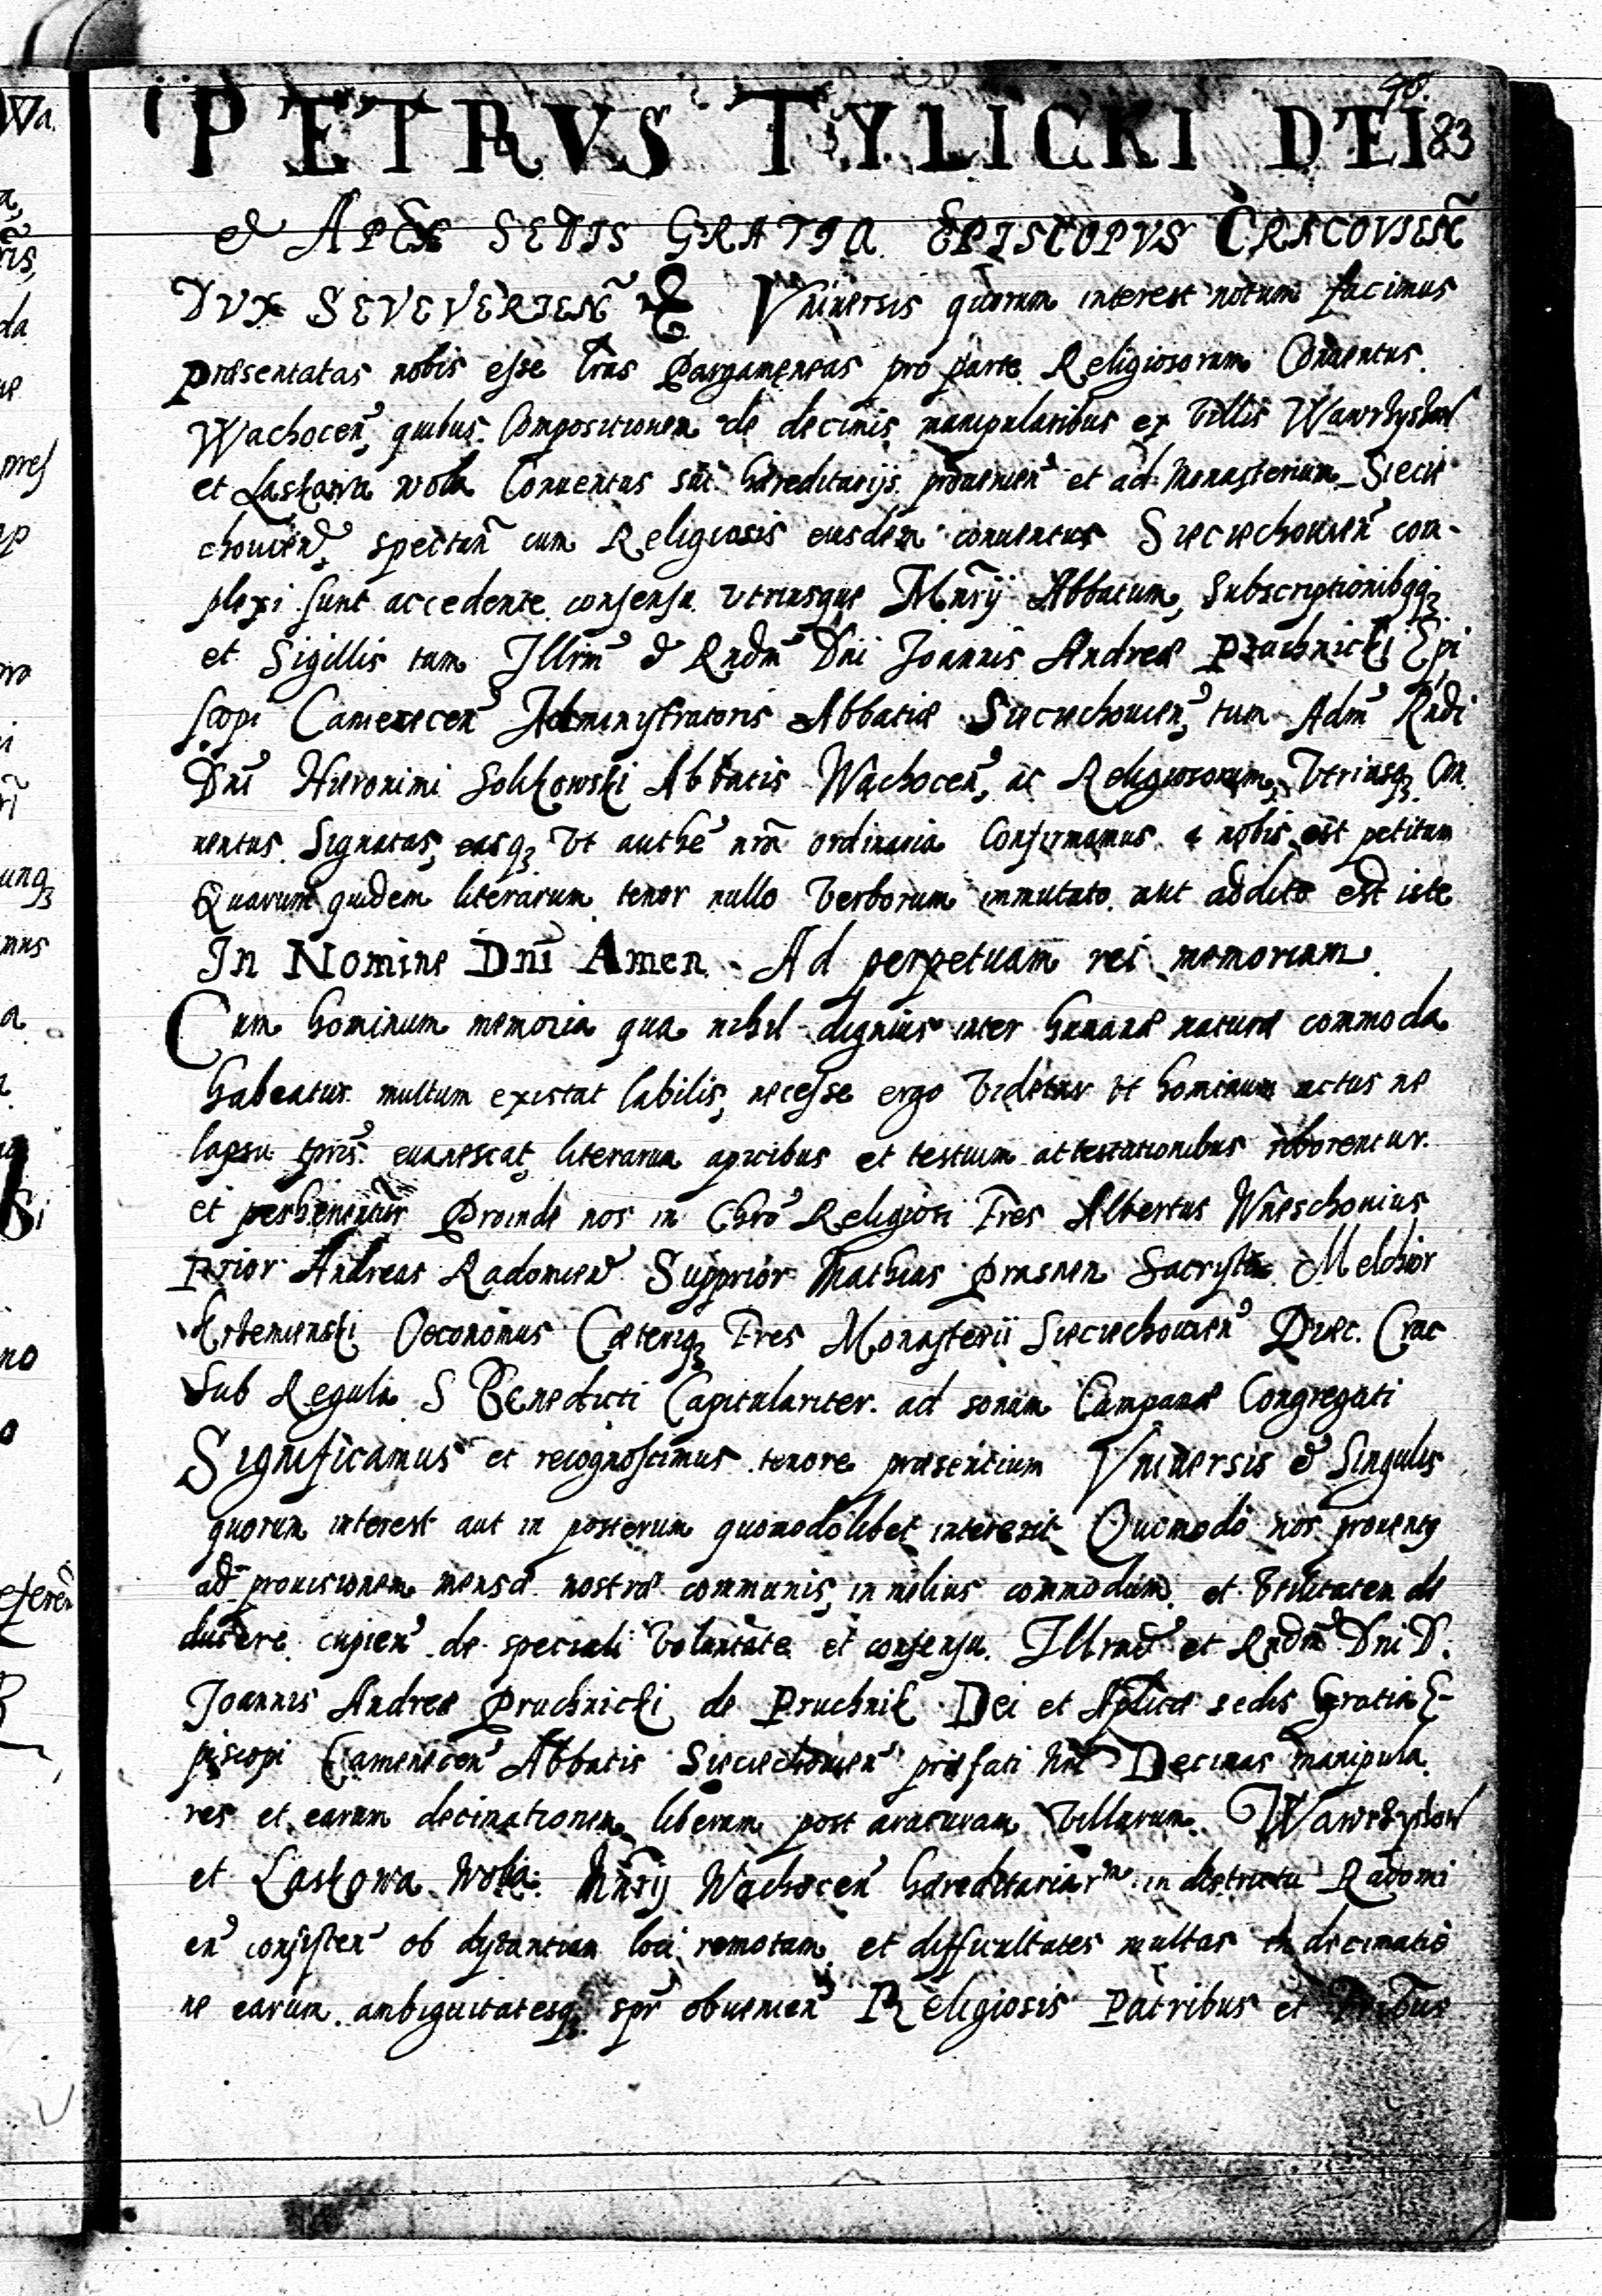 98
PETRVS TYLICKI DEI 83
& APCÆ SEDIS GRATIA EPISCOPVS CRACOVIEÑ
DVX SEVEVERIEÑ & Vniuersis quorum interest notum facimus
præsentatas nobis esse lras Pargameneas pro parte Religiosorum Conuentus
Wachoceñ, quibus Compositionem de decimis manipularibus ex villis Wawrzyszow
et Laskowa wola Conuentus sui hæreditarijs prouenieñ et ad Monasterium Siecie
chouień, spectañ cum Religiosis eiusdem conuentus Sieciechouieñ com-
plexi sunt accedente consensu vtriusque Mñrij Abbatum, Subscriptionibqq3
et Sigillis tam Illrm̃ & Rndm̃ Dñi Joannis Andreæ Prachnicki Epi
scopi Cameneceñ Administratoris Abbatiæ Sieciechouieñ, tum Adm̃ Rndi
Dñi Hieronimi Solikowski Abbatis Wąchoceñ, ac Religiosorum, Vtriusq3 Con
uentus Signatas, easq3 vt authẽ nrã ordinaria Confirmamus a nobis est petitum
Quarum quidem literarum tenor nullo verborum immutato aut addito est iste
In Nomine Dñi Amen. Ad perpetuam rei memoriam
Cum hominum memoria qua nihil dignius inter humanæ naturæ commoda
habeatur multum existat labilis, necesse ergo videtur vt hominum actus ne
lapsu tpris euanescat, literarum apicibus et testium attestationibus roborentur
et perhenentur Proinde nos in Chrõ Religiosi Fres Albertus Wneschouius
Prior Andreas Radomień Supprior Mathias Prasnen Sacrista Melchior
Oeconomus Cæteriq3 Fres Monasterii Sieciechouieñ Diec. Crac
Sub Regula S Benedicti Capitulariter ad sonum Campanæ Congregati
Significamus et recognoscimus tenore præsentium Vniuersis & Singulis
quorum interest aut in posterum quomodolibet intererit Quomodo nos prouent9
ad prouisionem mensæ nostræ communis, in melius commodum et vtilitatem de
ducere cupieñ de speciali voluntate et consensu Illrmi et Rndm̃ Dni D.
Joannis Andreæ Pruchnicki de Pruchnik Dei et Aplicæ sedis Gratia E-
piscopi Cameneceñ Abbatis Sieciechouieñ præfati Decimas manipula
res et earum decimationem liberam post araturam Villarum Wawrzyszow
et Laskowa Wola Mñrij Wąchoceñ hæreditariarm in districtu Radomi
eñ consisteñ ob distantiam loci remotam et difficultates multas in decimatio
ne earum ambiguitatesq3 spr obuenieñ Religiosis Patribus et Fratribus